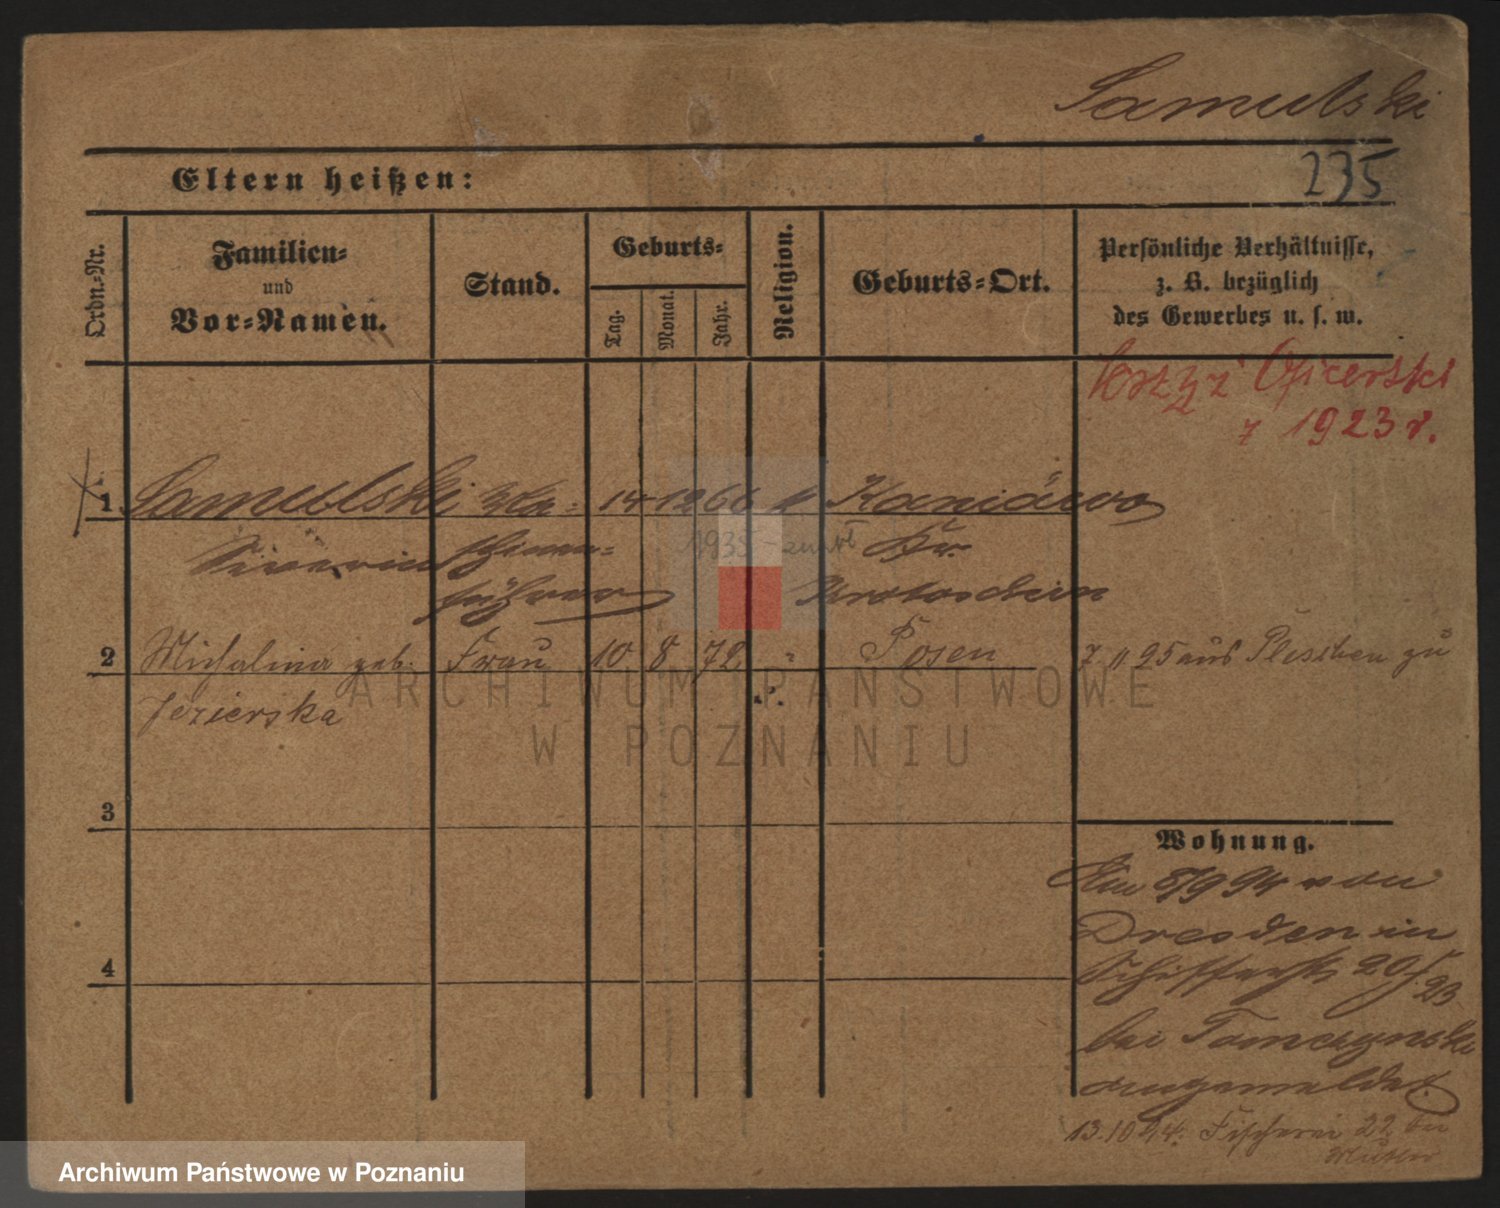 Samulski
235
Eltern heißen:
Ordn.-Nr.
Familien-
und
Vor-Namen.
Stand.
Geburts-
Tag.
Monat.
Jahr.
Religion.
Geburts-Ort.
Persönliche Verhältnisse,
z. B. bezüglich
des Gewerbes u. s. w.
Krzyż Oficerski
z 1923 r.
1 Samulski 14 12 66 Kaniówo
1935
Kr.
führer Krotoschin
2 Michalina geb. Frau 10. 8 72 " Posen 7 11 95 aus Pleschen zu
Jezierska
ARCHIWUM PAŃSTWOWE
W POZNANIU
3
Wohnung.
Am 8/9 94 von
Dresden in
4
Schifferstr 20/23
bei Tomczynski
angemeldet.
13.10.94. Fischerei 22 bei
Archiwum Państwowe w Poznaniu